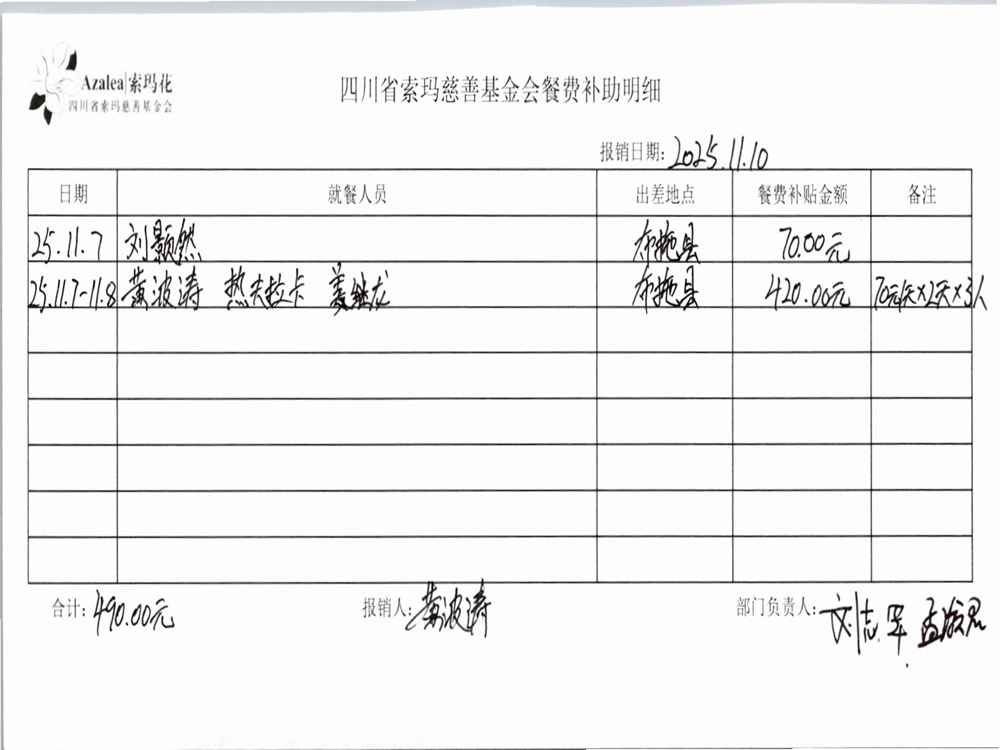 Azalea|索玛花
四川省索玛慈善基金会
四川省索玛慈善基金会餐费补助明细
报销日期：2025.11.10
日期 就餐人员 出差地点 餐费补贴金额 备注
25.11.7 刘颢然 布拖县 70.00元
25.11.7-11.8 黄波涛 热夫拉卡 姜继龙 布拖县 420.00元 70元/天×2天×3人
合计：490.00元 报销人：黄波涛 部门负责人：刘志军